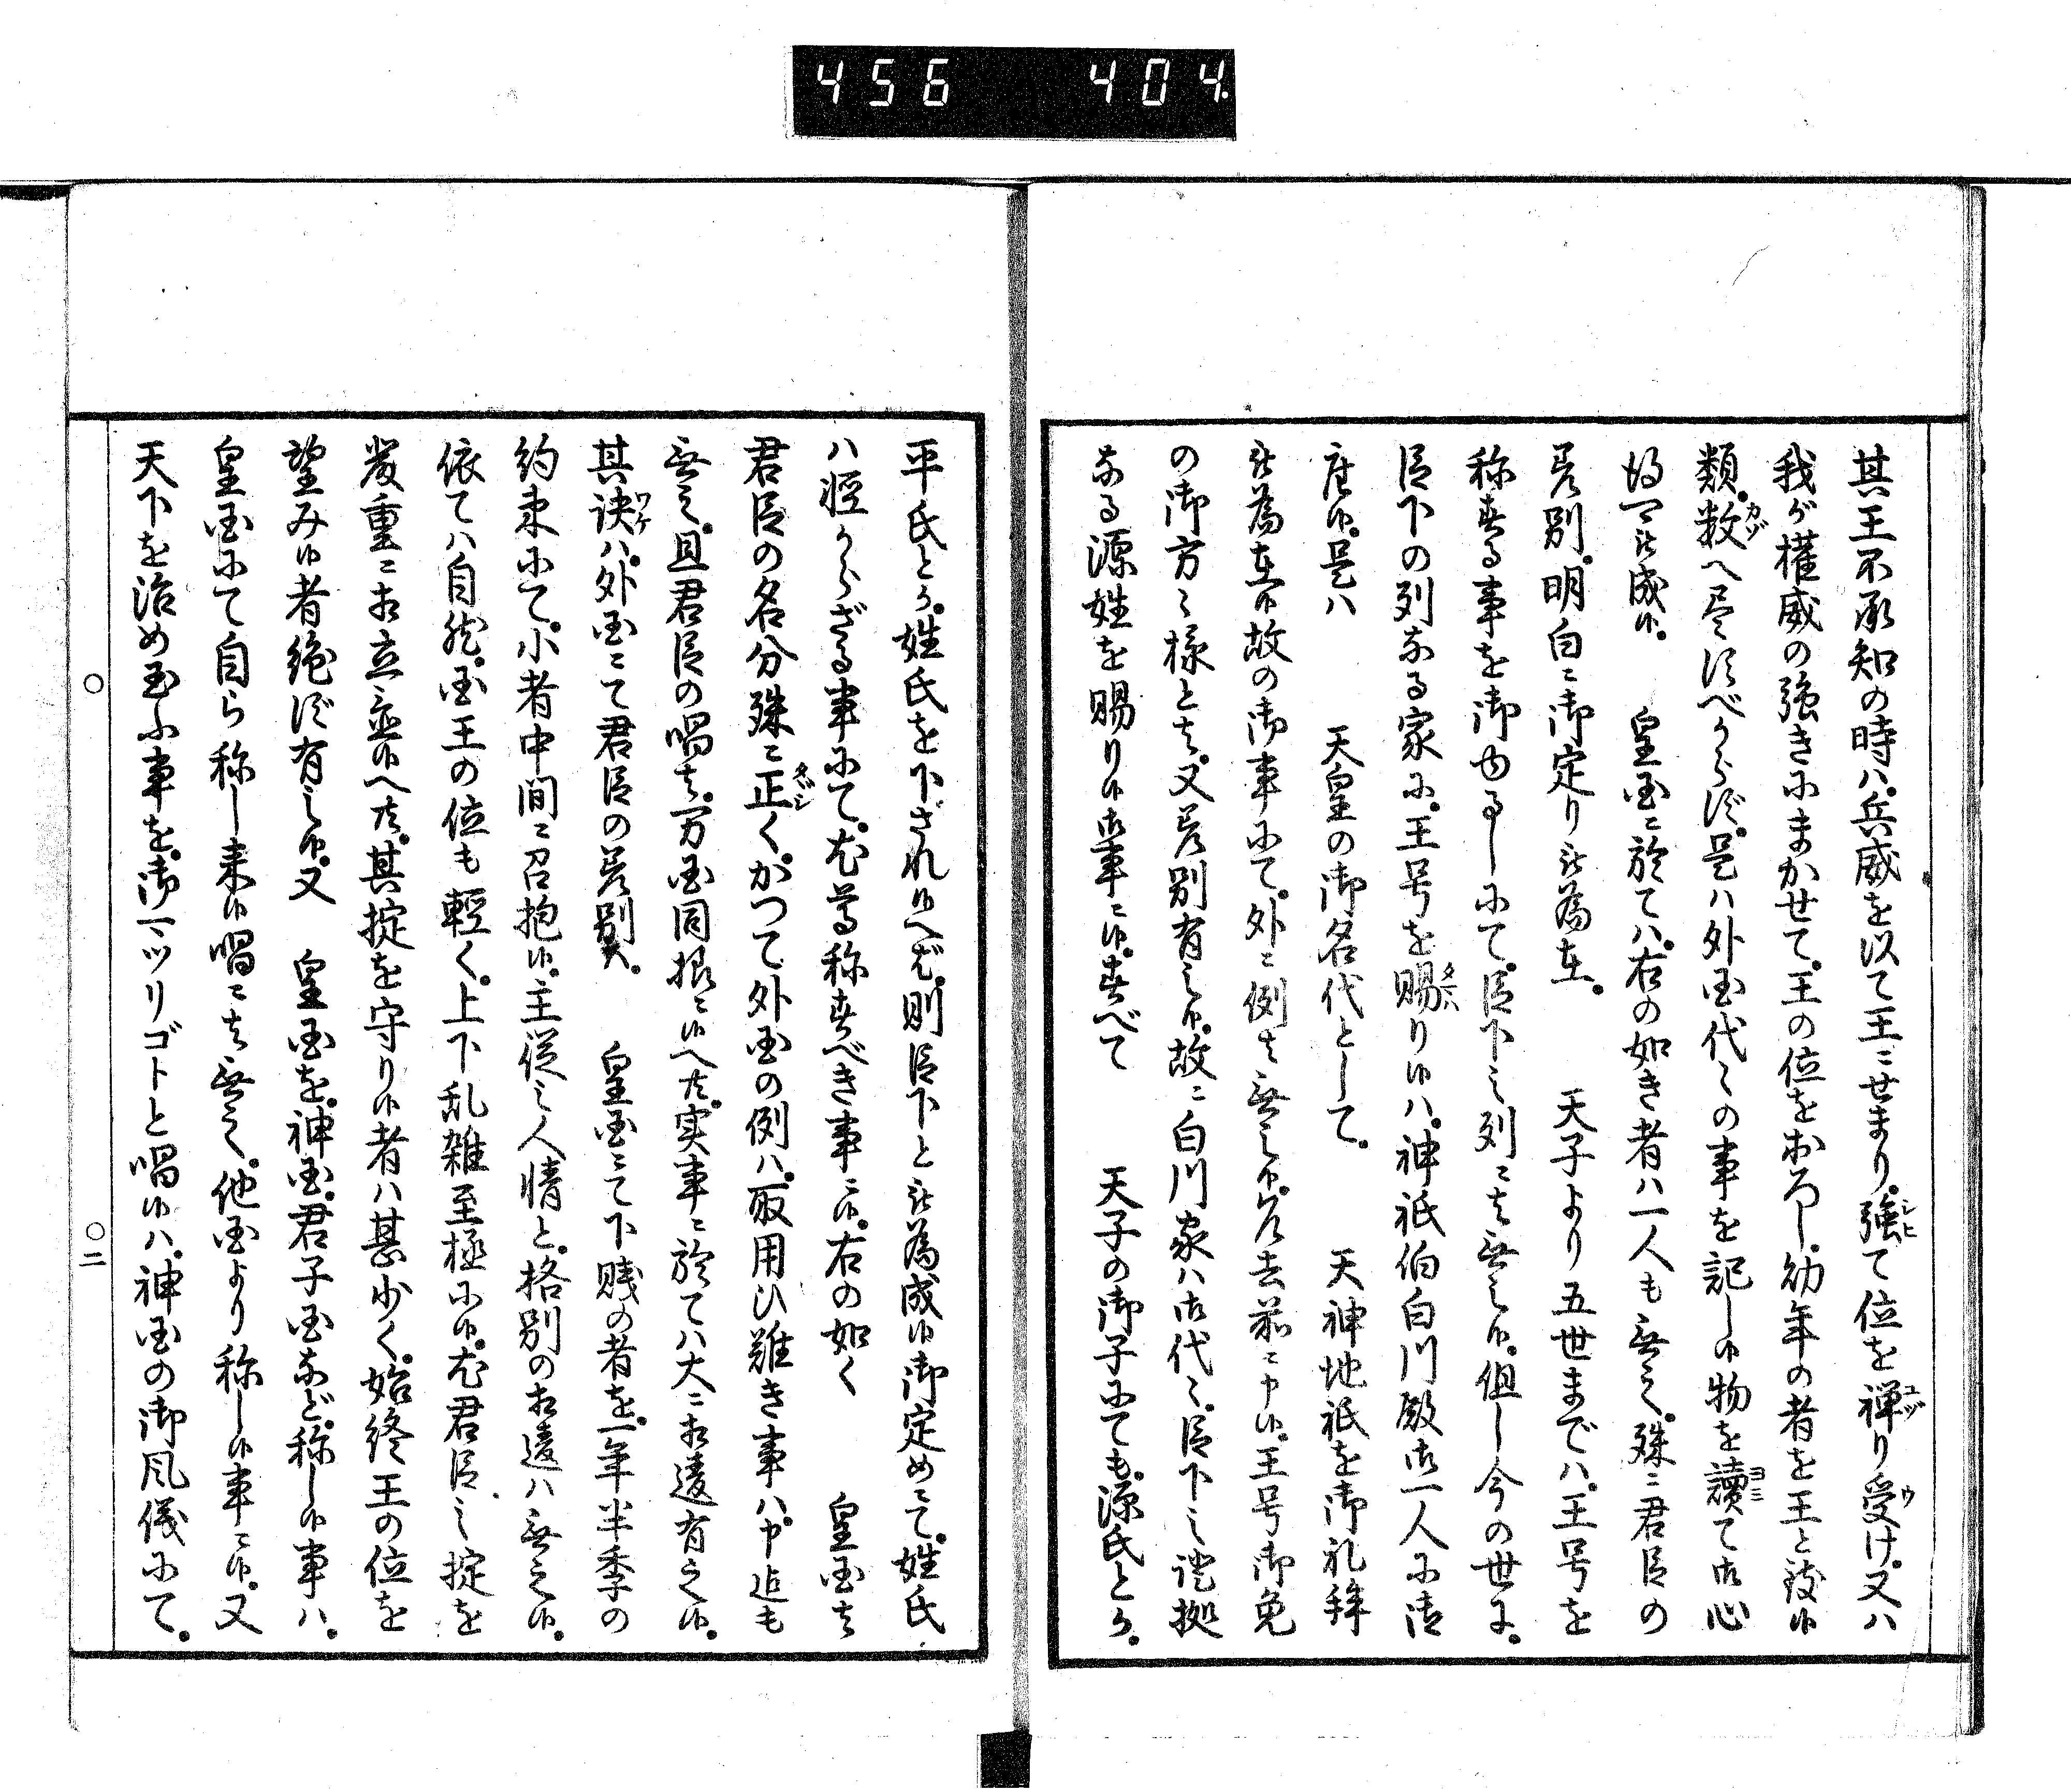 456 404.
其王不承知の時ハ。兵威を以て王ニせまり。強て位を禅り受け。又ハ
我が權威の強きにまかせて。王の位をおろし。幼年の者を王と致候
類。数へ尽すべからず。是ハ外国代々の事を記し候物を讀て御心
得可被成候。 皇国ニ於てハ。右の如き者ハ一人も無之。殊ニ君臣の
差別。明白ニ御定り被為在。 天子より五世までハ。王号を
称する事を御ゆるしにて。臣下之列ニは無之候。但し今の世に。
臣下の列なる家に。王号を賜り候ハ。神祇伯白川殿御一人に御
座候。是ハ 天皇の御名代として。 天神地祇を御礼拜
被為在候故の御事にて。外ニ例は無之候。右去茲ニ申候。王号御免
の御方々様とは。又差別有之候。故ニ白川家ハ御代々。臣下之證拠
なる源姓を賜り候御事ニ候。すべて 天子の御子にても。源氏とか。
平氏とか。姓氏を下ざれ候へば。則臣下と被為成候御定めニて。姓氏
ハ軽からざる事にて。尤尊称すべき事ニ候。右の如く 皇国は
君臣の名分殊ニ正く。かつて外国の例ハ。取用ひ難き事ハ。申迄も
無之。且君臣の唱は。万国同様ニ候へ共。実事ニ於てハ大ニ相違有之候。
其訣ハ。外国ニて君臣の差別ハ。 皇国ニて下賎の者を。一年半季の
約束にて。小者中間ニ召抱候。主従之人情と。格別の相違ハ無之候。
依てハ自然。国王の位も輕く。上下乱雑至極に候。尤君臣之掟を
嚴重ニ相立並候へ共。其掟を守り候者ハ甚少く。始終王の位を
望み候者絶ず有之候。又 皇国を。神国。君子国など。称し候事ハ。
皇国にて自ら称し来候唱ニは無之。他国より称し候事ニ候。又
天下を治め玉ふ事を。御マツリゴトと唱候ハ。神国の御風儀にて。
シヒ
ユヅ
ウ
カゾ
ヨミ
タマハ
タヾシ
ワケ
○ ○二